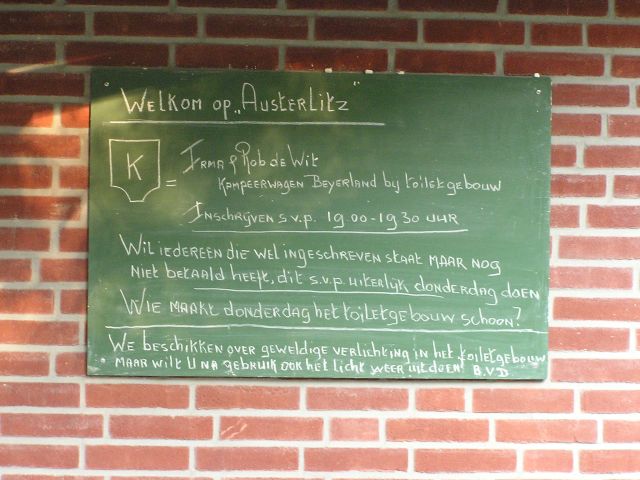 WELKOM OP „AUSTERLITZ"
K = IRMA & ROB DE WIT
KAMPEERWAGEN BEYERLAND by toiletgebouw
INSCHRIJVEN S.V.P. 19 00 - 19 30 UUR
WIL IEDEREEN DIE WEL INGESCHREVEN STAAT MAAR NOG
NIET BETAALD HEEFT, DIT S.V.P. UITERLIJK DONDERDAG DOEN
WIE MAAKT DONDERDAG HET TOILETGEBOUW SCHOON?
WE BESCHIKKEN OVER GEWELDIGE VERLICHTING IN HET TOILETGEBOUW
MAAR WILT U NA GEBRUIK OOK HET LICHT WEER UITDOEN! B.V.D